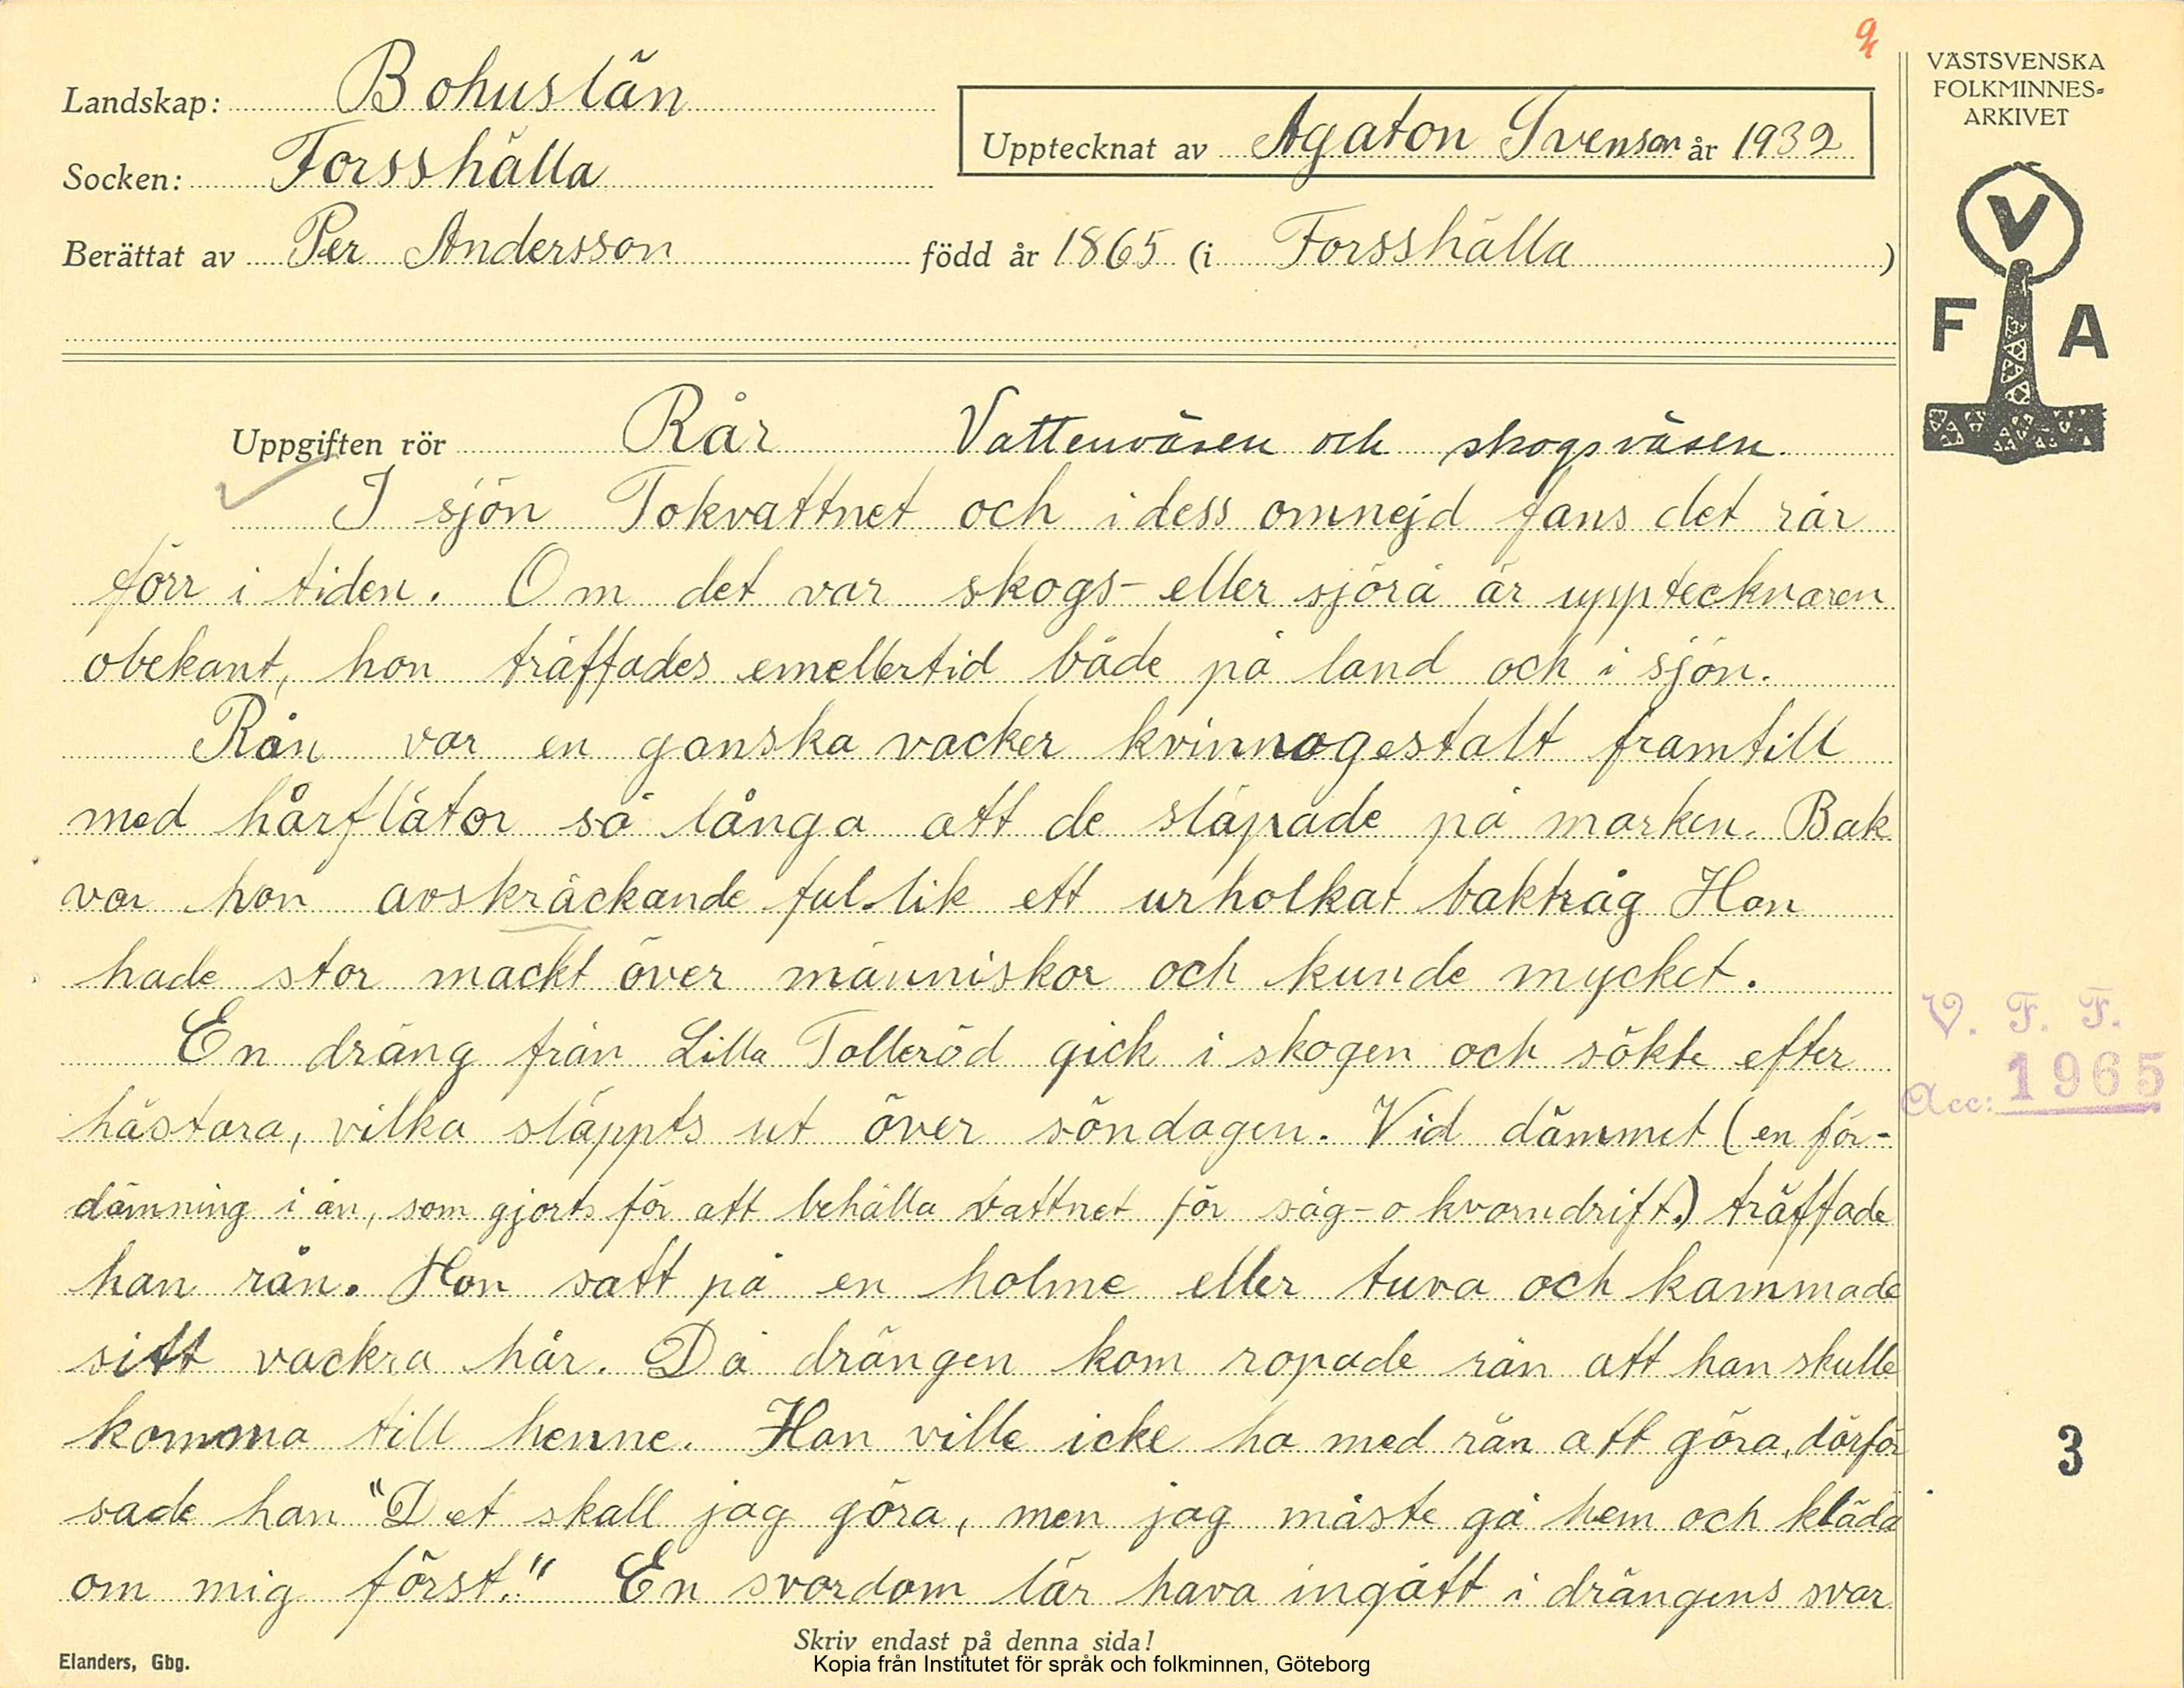 Landskap: Bohuslän
Socken: Forsshälla
Upptecknat av Agaton Svenson år 1932
Berättat av Per Andersson född år 1865 (i Forsshälla )
VÄSTSVENSKA
FOLKMINNES-
ARKIVET
V
F A
Uppgiften rör Rår Vattenväsen och skogsväsen.
I sjön Tokvattnet och i dess omnejd fans det rår
förr i tiden. Om det var skogs- eller sjörå är upptecknaren
obekant, hon träffades emellertid både på land och i sjön.
Rån var en ganska vacker kvinnogestalt framtill
med hårflätor så långa att de släpade på marken. Bak
var hon avskräckande ful lik ett urholkat baktråg Hon
hade stor mackt över människor och kunde mycket.
En dräng från Lilla Tolleröd gick i skogen och sökte efter
hästara, vilka släppts ut över söndagen. Vid dämmet (en för-
dämning i ån, som gjorts för att behålla vattnet för såg- o kvarndrift.) träffade
han rån. Hon satt på en holme eller tuva och kammade
sitt vackra hår. Då drängen kom ropade rån att han skulle
komma till henne. Han ville icke ha med rån att göra, därför
sade han "Det skall jag göra, men jag måste gå hem och kläda
om mig först." En svordom lär hava ingått i drängens svar
V. F. F.
Acc: 1965
3
Skriv endast på denna sida!
Elanders, Gbg.
Kopia från Institutet för språk och folkminnen, Göteborg